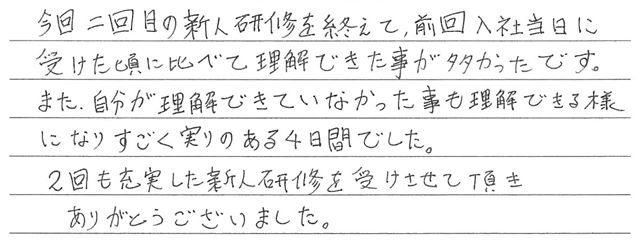 今回二回目の新人研修を終えて,前回入社当日に
受けた頃に比べて理解できた事が多かったです。
また、自分が理解できていなかった事も理解できる様
になりすごく実りのある4日間でした。
2回も充実した新人研修を受けさせて頂き
ありがとうございました。